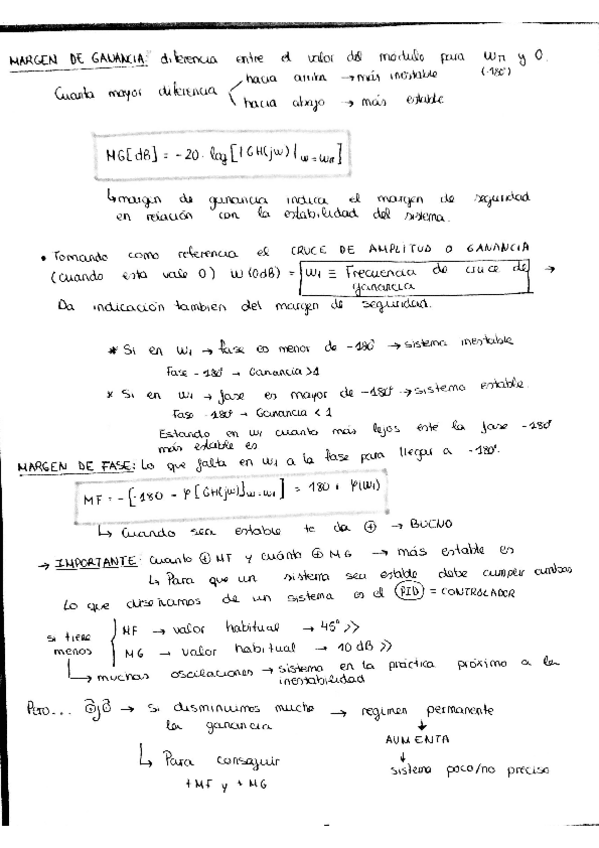 MARGEN DE GANANCIA: diferencia entre el valor del modulo para Wπ y 0.
(-180°)
Cuanta mayor diferencia
hacia arriba → más inestable
hacia abajo → más estable
MG[dB] = -20 · log[|GH(jw)|w=wπ]
↳ margen de ganancia indica el margen de seguridad
en relación con la estabilidad del sistema.
• Tomando como referencia el CRUCE DE AMPLITUD O GANANCIA
(cuando esta vale 0) W(0dB) = W1 ≡ Frecuencia de cruce de →
ganancia
Da indicación tambien del margen de seguridad.
* Si en W1 → fase es menor de -180° → sistema inestable
Fase -180° → Ganancia >1
* Si en W1 → fase es mayor de -180° → sistema estable.
Fase -180° → Ganancia < 1
Estando en W1 cuanto más lejos esté la fase -180°
más estable es
MARGEN DE FASE: Lo que falta en W1 a la fase para llegar a -180°.
MF = -[-180 - φ[GH(jw)]w=w1] = 180 + φ(W1)
↳ Cuando sea estable te da ⊕ → BUENO
→ IMPORTANTE: Cuanto ⊕ MF y cuánto ⊕ MG → más estable es
↳ Para que un sistema sea estable debe cumplir ambas
Lo que diseñamos de un sistema es el PID = CONTROLADOR
si tiene
menos
MF → valor habitual → 45° >>
MG → valor habitual → 10 dB >>
↳ muchas oscilaciones → sistema en la práctica próximo a la
inestabilidad
Pero... OjO → si disminuimos mucho → regimen permanente
la ganancia
↓
AUMENTA
↳ Para conseguir
↓
+MF y +MG
sistema poco/no preciso